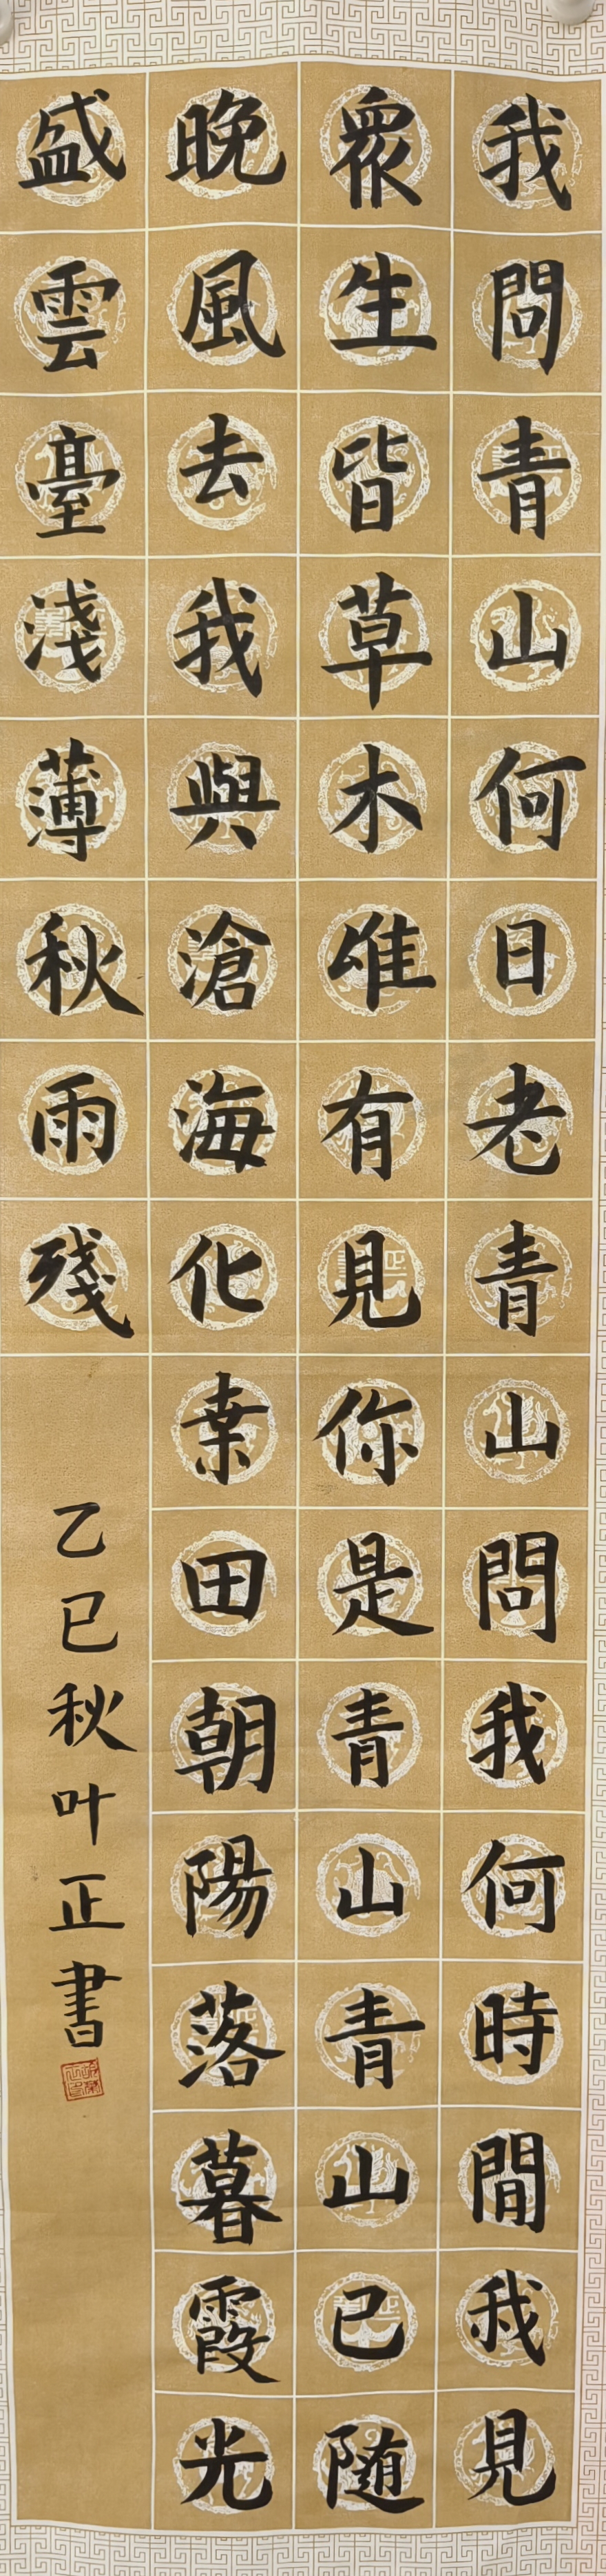 我問青山何日老青山問我何時閒我見
衆生皆草木唯有見你是青山青山已随
晚風去我與滄海化桒田朝陽落暮霞光
盛雲臺淺薄秋雨殘
乙巳秋叶正書